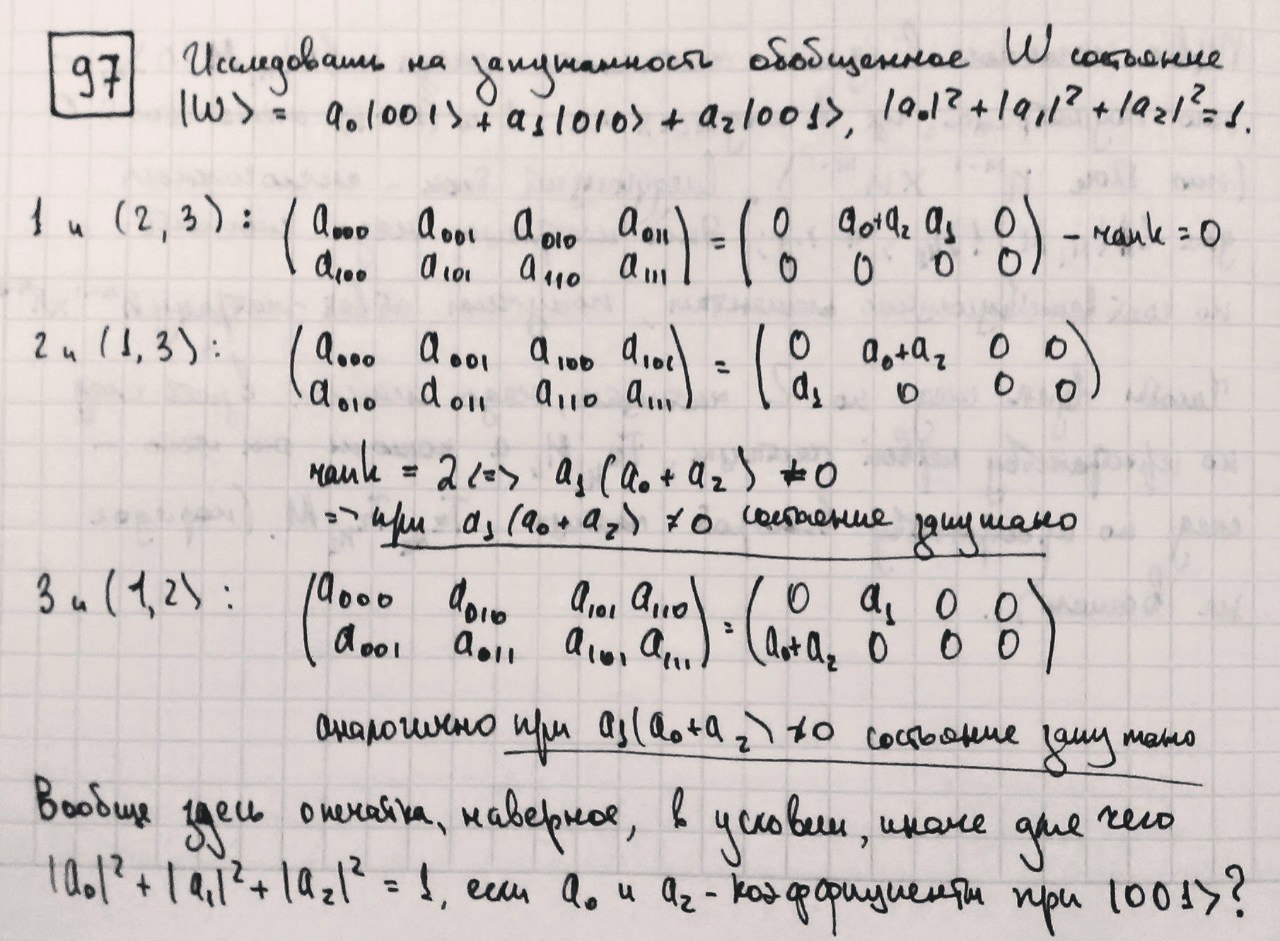 97 Исследовать на запутанность обобщенное W состояние
|W> = a₀|001> + a₁|010> + a₂|001>, |a₀|² + |a₁|² + |a₂|² = 1.
1 и (2,3): (a₀₀₀ a₀₀₁ a₀₁₀ a₀₁₁ = (0 a₀+a₂ a₁ 0) – rank = 0
a₁₀₀ a₁₀₁ a₁₁₀ a₁₁₁) 0 0 0 0)
2 и (1,3): (a₀₀₀ a₀₀₁ a₁₀₀ a₁₀₁ = (0 a₀+a₂ 0 0
a₀₁₀ a₀₁₁ a₁₁₀ a₁₁₁) a₁ 0 0 0)
rank = 2 <=> a₁(a₀ + a₂) ≠ 0
=> при a₁(a₀ + a₂) ≠ 0 состояние запутано
3 и (1,2): (a₀₀₀ a₀₁₀ a₁₀₁ a₁₁₀ = (0 a₁ 0 0
a₀₀₁ a₀₁₁ a₁₀₁ a₁₁₁) a₀+a₂ 0 0 0)
аналогично при a₁(a₀+a₂) ≠ 0 состояние запутано
Вообще здесь опечатка, наверное, в условии, иначе для чего
|a₀|² + |a₁|² + |a₂|² = 1, если a₀ и a₂ - коэффициенты при |001>?